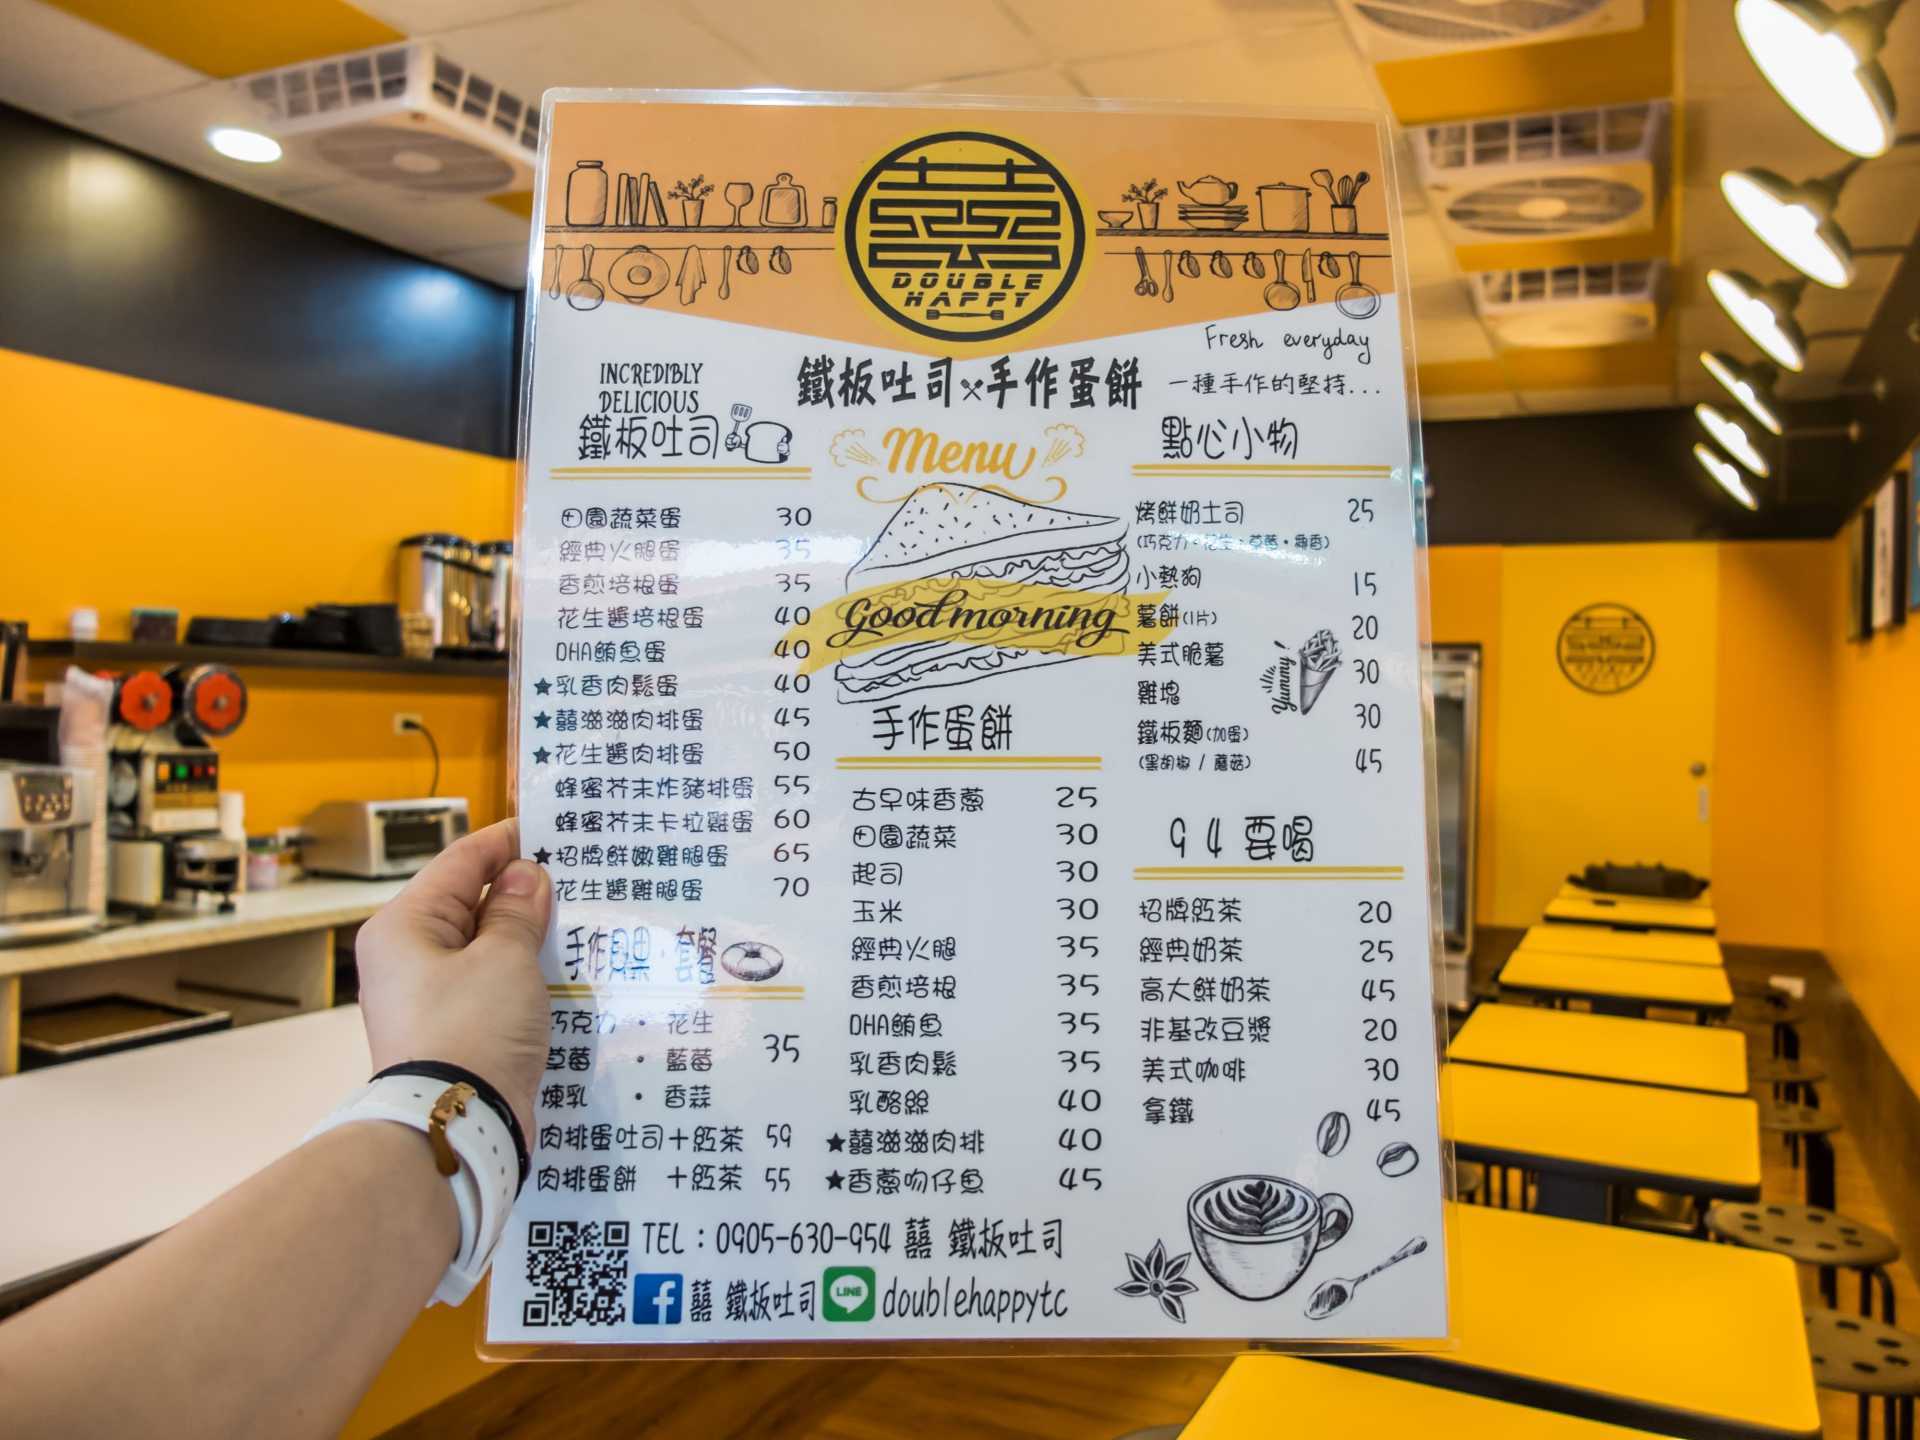 DOUBLE
HAPPY
Fresh everyday
鐵板吐司×手作蛋餅
一種手作的堅持...
INCREDIBLY
DELICIOUS
鐵板吐司
田園蔬菜蛋 30
經典火腿蛋 35
香煎培根蛋 35
花生醬培根蛋 40
DHA鮪魚蛋 40
★乳香肉鬆蛋 40
★囍滋滋肉排蛋 45
★花生醬肉排蛋 50
蜂蜜芥末炸豬排蛋 55
蜂蜜芥末卡拉雞蛋 60
★招牌鮮嫩雞腿蛋 65
花生醬雞腿蛋 70
手作貝果·套餐
巧克力 · 花生
草莓 · 藍莓 35
煉乳 · 香蒜
肉排蛋吐司+紅茶 59
肉排蛋餅 +紅茶 55
Menu
Good morning
手作蛋餅
古早味香蔥 25
田園蔬菜 30
起司 30
玉米 30
經典火腿 35
香煎培根 35
DHA鮪魚 35
乳香肉鬆 35
乳酪絲 40
★囍滋滋肉排 40
★香蔥吻仔魚 45
點心小物
烤鮮奶土司 25
(巧克力·花生·草莓·椰香)
小熱狗 15
薯餅(1片) 20
美式脆薯 30
雞塊 30
鐵板麵(加蛋) 45
(黑胡椒 / 蘑菇)
Yummy!
94要喝
招牌紅茶 20
經典奶茶 25
高大鮮奶茶 45
非基改豆漿 20
美式咖啡 30
拿鐵 45
TEL：0905-630-954 囍 鐵板吐司
f 囍 鐵板吐司 LINE doublehappytc